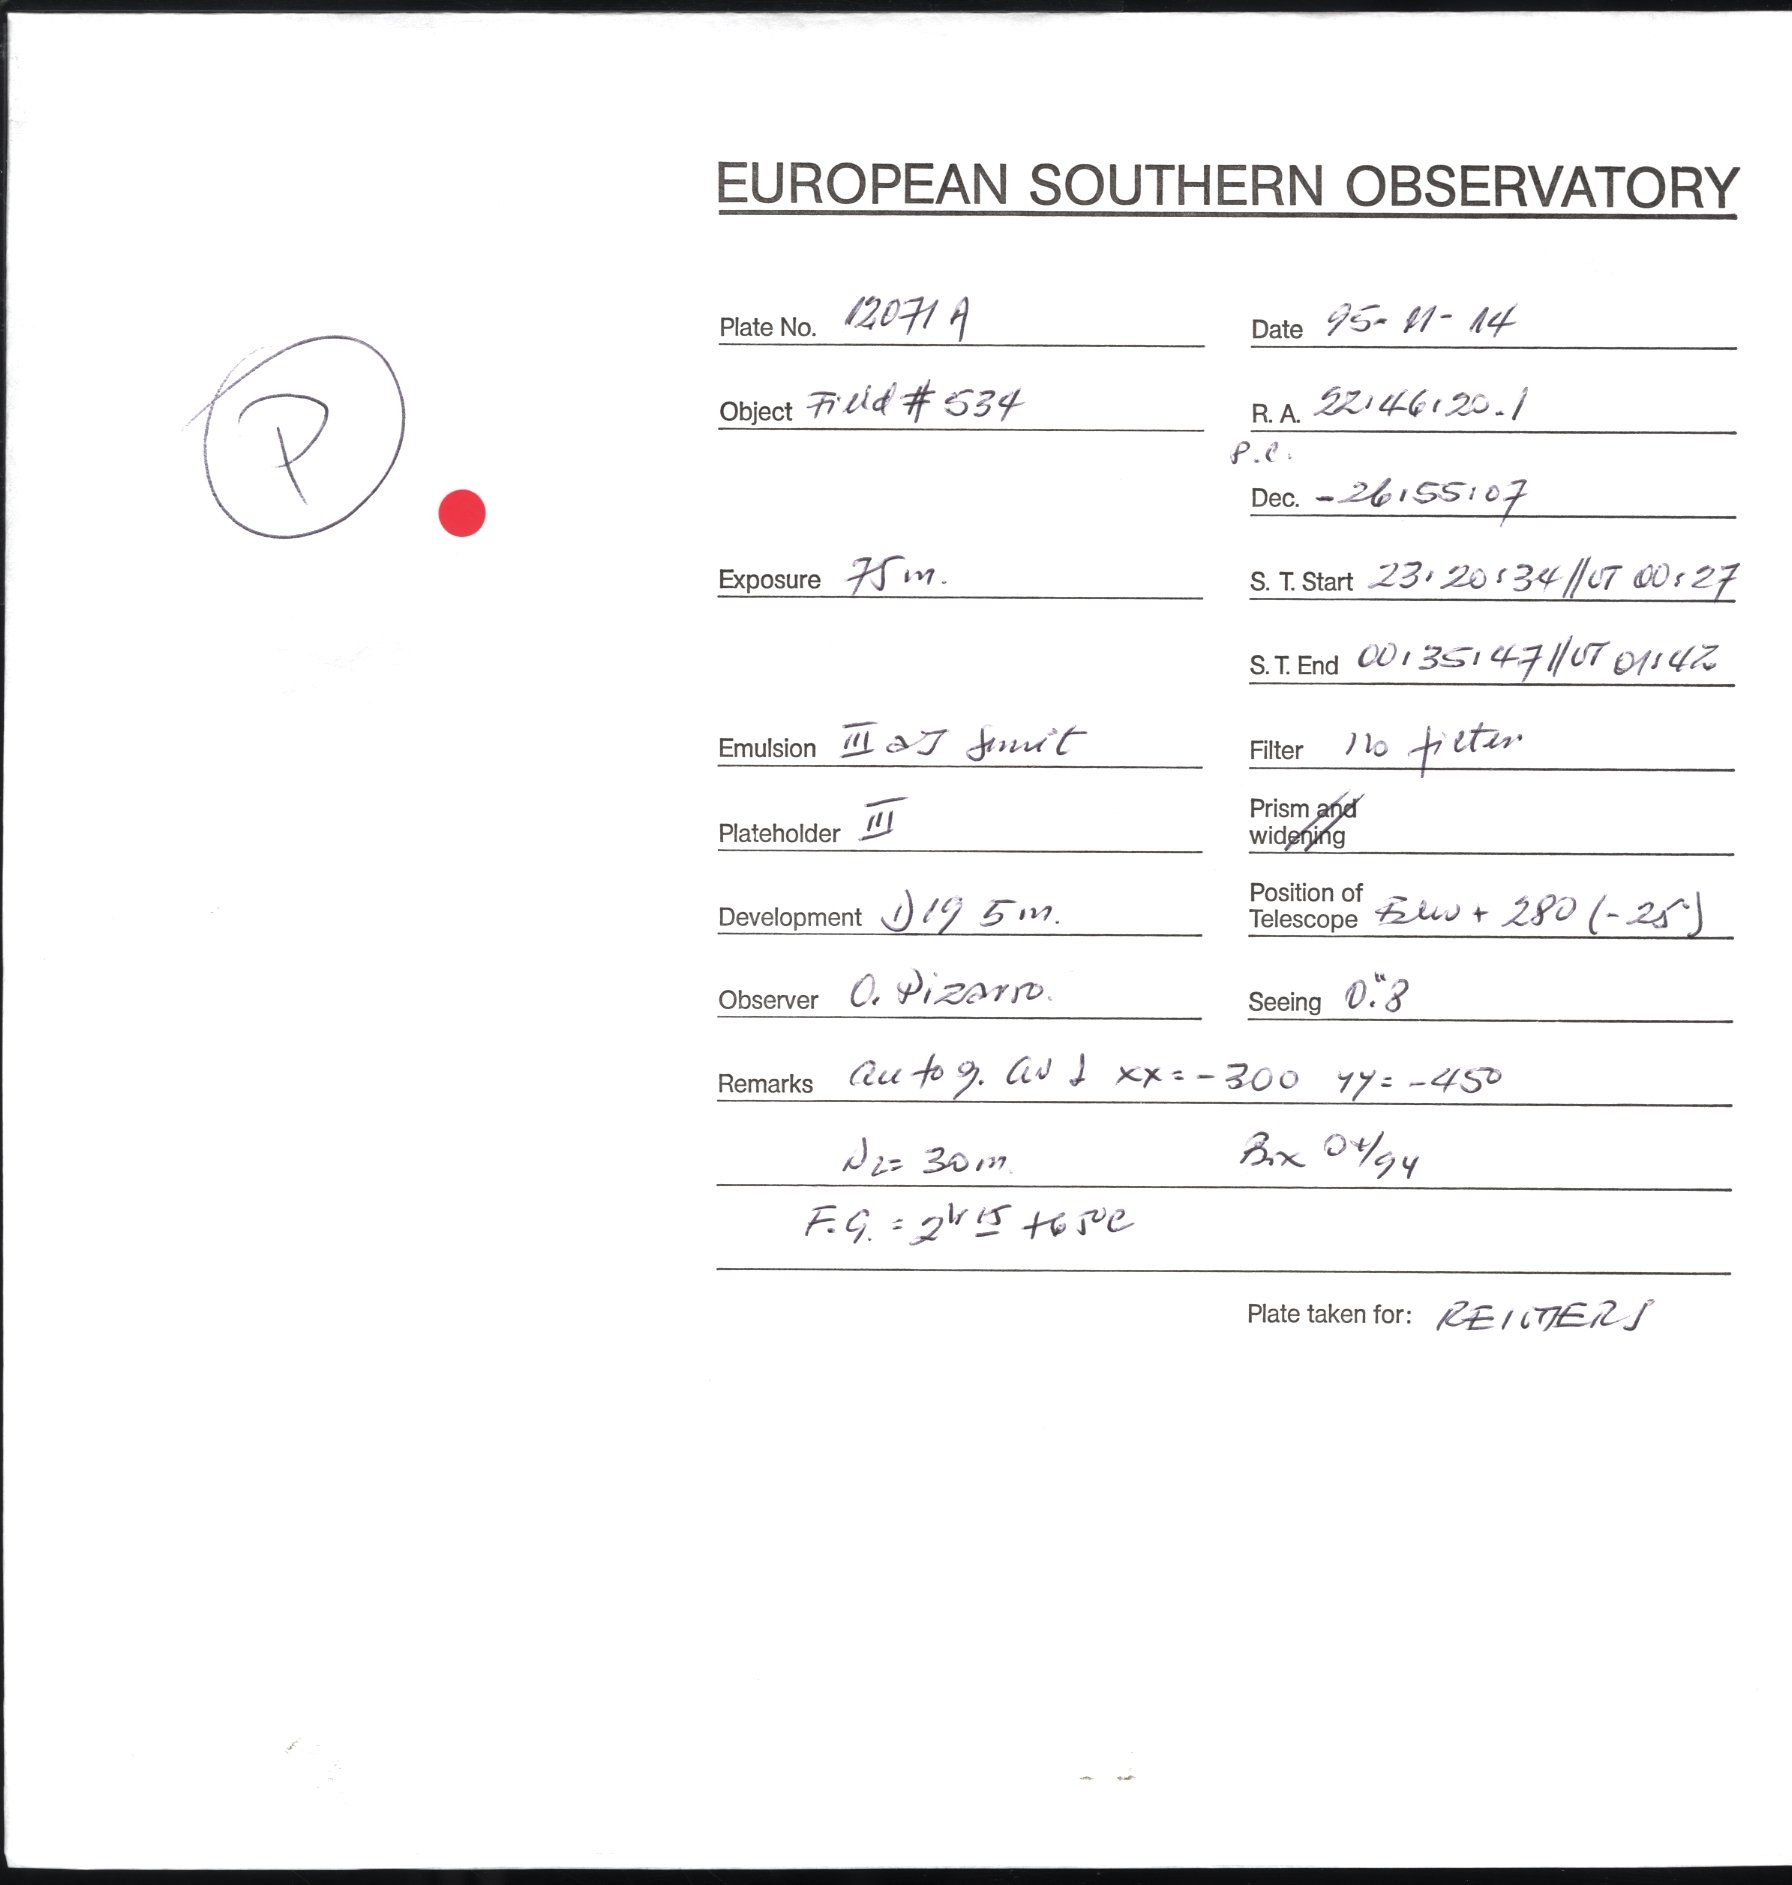 EUROPEAN SOUTHERN OBSERVATORY
Plate No. 12071 A
Date 95-11-14
Object Field # 534
R. A. 22:46:20.1
P
P.C.
Dec. -26:55:07
Exposure 75m.
S. T. Start 23:20:34//UT 00:27
S. T. End 00:35:47//UT 01:42
Emulsion III aJ
Filter no filter
Plateholder III
Prism and
widening
Development D19 5m.
Position of
Telescope + 280 (-25)
Observer O. Pizarro.
Seeing 0".8
Remarks autog. xx=-300 yy=-450
N2= 30m. Box 04/94
F.G. = 2hr 15 +65°C
Plate taken for: REIMERS